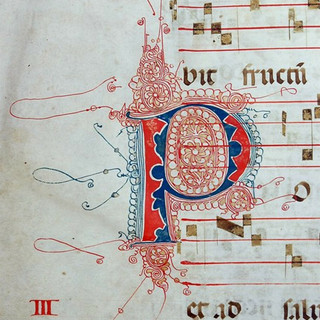 bit fructū
P
o
III
et ad salu